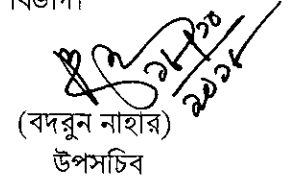 বিভাগ।
(বদরুন নাহার)
উপসচিব